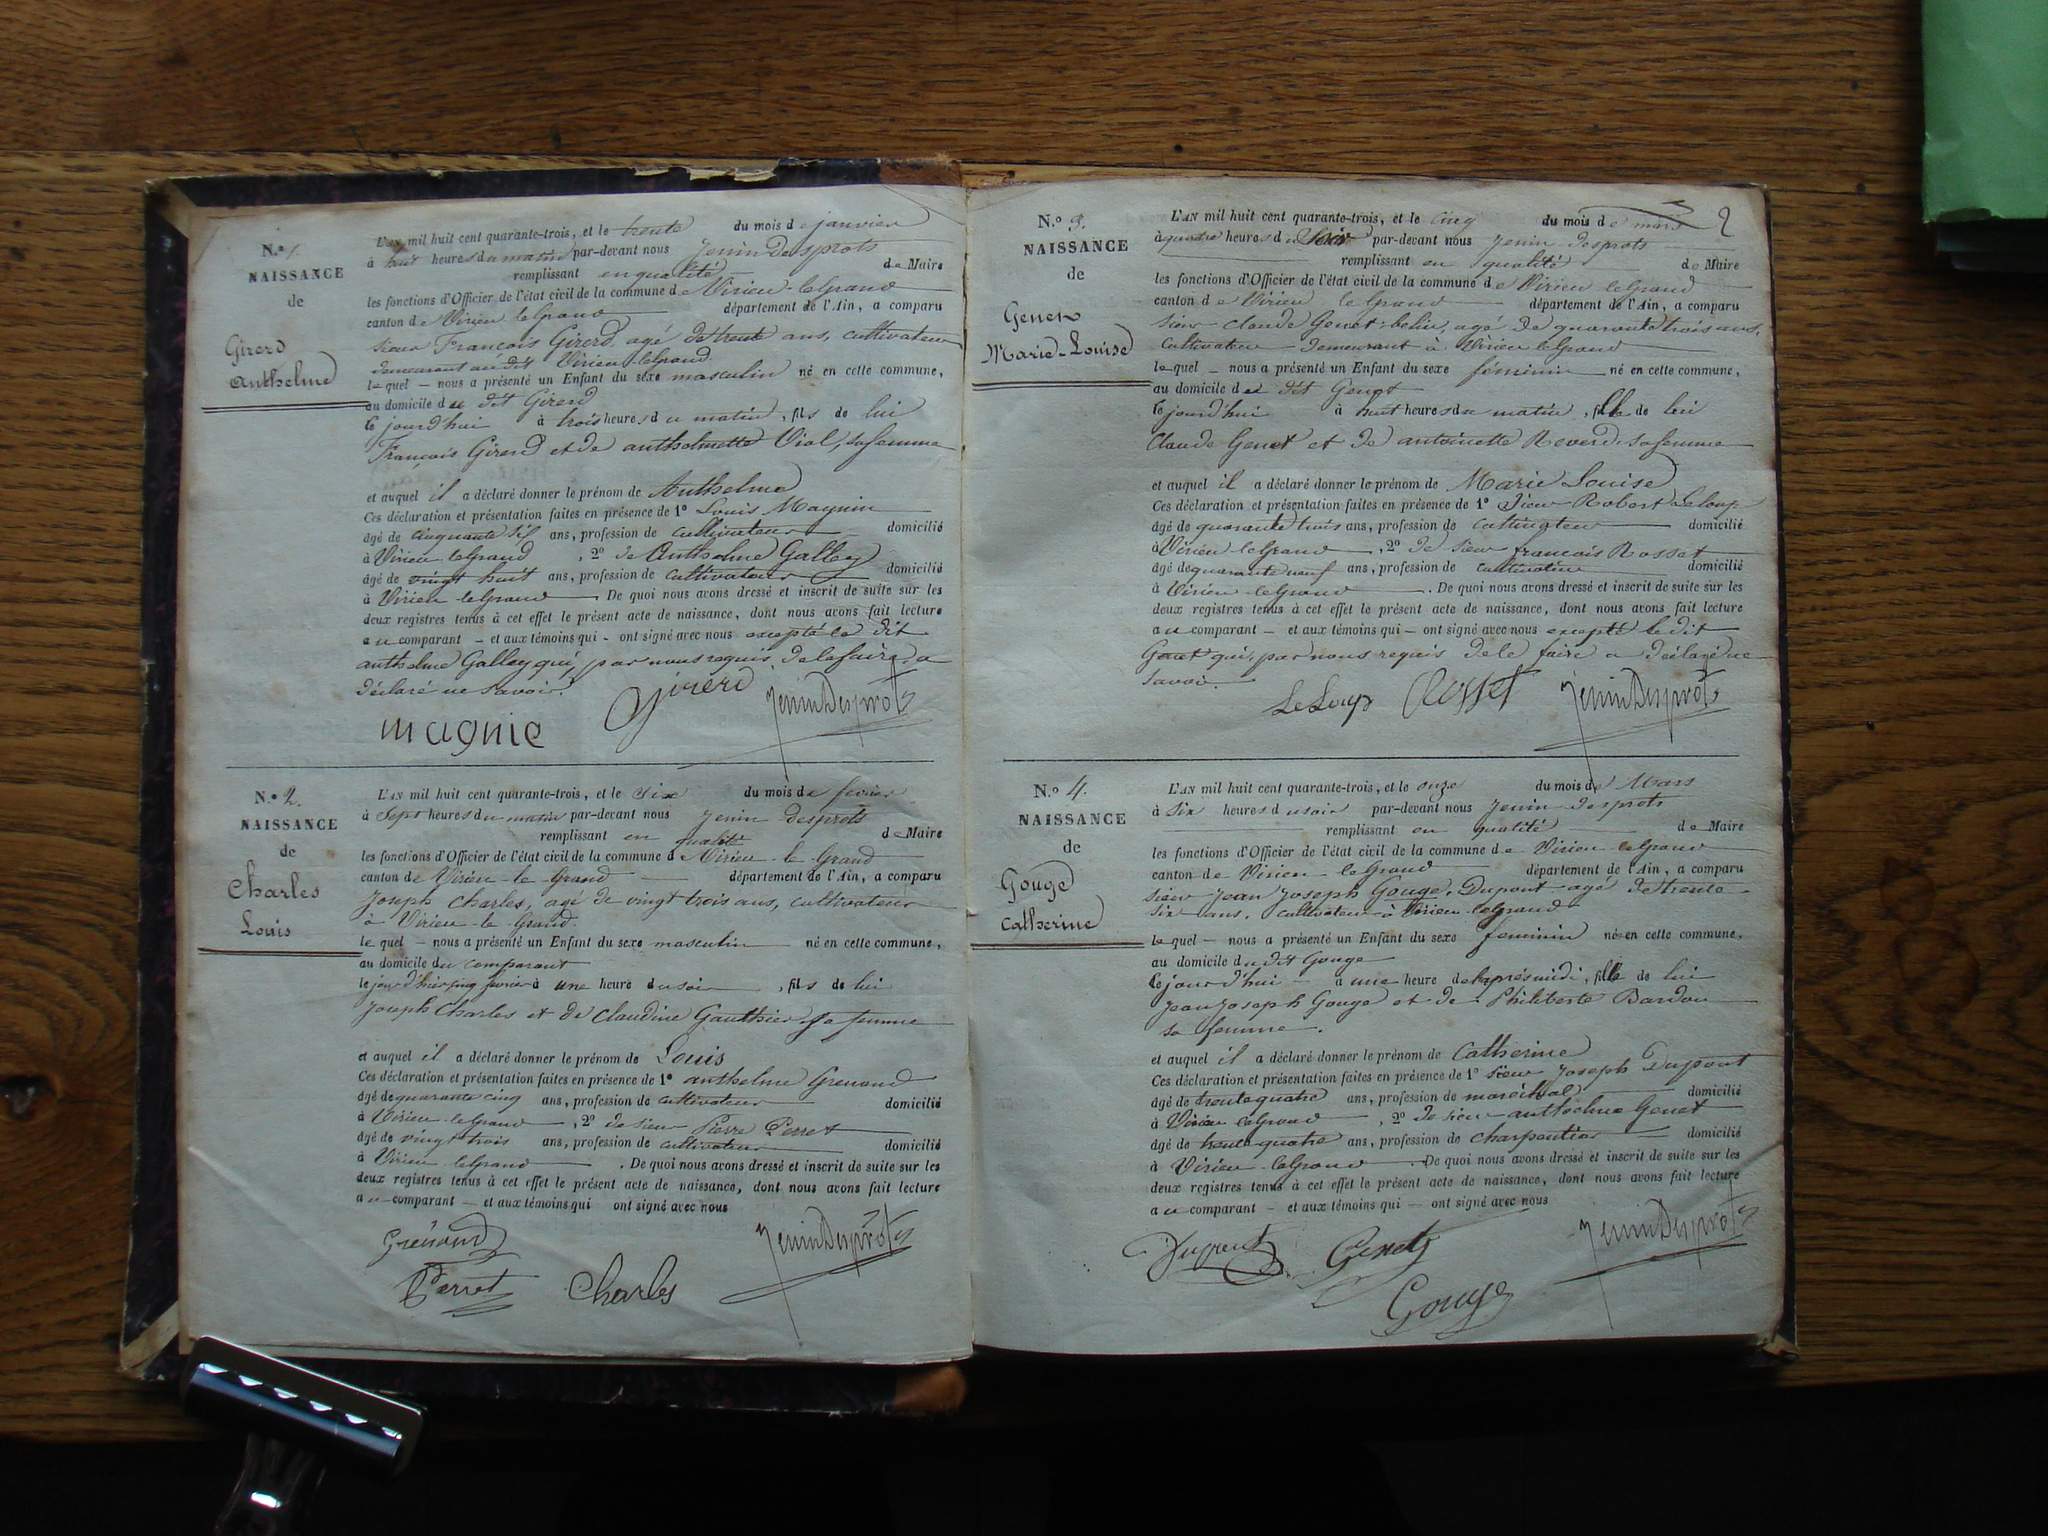 N.o 1.
NAISSANCE
de
Girerd
Anthelme
L'AN mil huit cent quarante-trois, et le trente du mois de janvier
à huit heures du matin par-devant nous Jenin Desprots
remplissant en qualité de Maire
les fonctions d'Officier de l'état civil de la commune de Virieu-le Grand
canton de Virieu le Grand département de l'Ain, a comparu
sieur François Girerd, agé de trente ans, cultivateur
demeurant au dit Virieu-le Grand.
lequel – nous a présenté un Enfant du sexe masculin né en cette commune,
au domicile du dit Girerd
le jourd'hui à trois heures du matin, fils de lui
François Girerd et de anthelmette Viol, sa femme
et auquel il a déclaré donner le prénom de Anthelme
Ces déclaration et présentation faites en présence de 1º Louis Magnin
âgé de cinquante six ans, profession de cultivateur domicilié
à Virieu le Grand, 2º de Anthelme Galley
âgé de vingt huit ans, profession de cultivateur domicilié
à Virieu le Grand. De quoi nous avons dressé et inscrit de suite sur les
deux registres tenus à cet effet le présent acte de naissance, dont nous avons fait lecture
au comparant – et aux témoins qui – ont signé avec nous excepté le dit
anthelme Galley qui, par nous requis, de le faire, a
déclaré ne savoir.
Girerd JeninDesprots
magnie
N.o 2.
NAISSANCE
de
Charles
Louis
L'AN mil huit cent quarante-trois, et le six du mois de fevrier
à sept heures du matin par-devant nous Jenin desprots
remplissant en qualité de Maire
les fonctions d'Officier de l'état civil de la commune de Virieu-le-Grand
canton de Virieu-le-Grand département de l'Ain, a comparu
Joseph Charles, agé de vingt trois ans, cultivateur
à Virieu-le-Grand.
lequel – nous a présenté un Enfant du sexe masculin né en cette commune,
au domicile du comparant
le jour d'hier cinq fevrier à une heure du soir, fils de lui
Joseph Charles et de Claudine Gauthier, sa femme
et auquel il a déclaré donner le prénom de Louis
Ces déclaration et présentation faites en présence de 1º anthelme Grenand
âgé de quarante cinq ans, profession de cultivateur domicilié
à Virieu-le Grand, 2º de sieur Pierre Perret
âgé de vingt trois ans, profession de cultivateur domicilié
à Virieu-le Grand. De quoi nous avons dressé et inscrit de suite sur les
deux registres tenus à cet effet le présent acte de naissance, dont nous avons fait lecture
au comparant – et aux témoins qui ont signé avec nous
Grenand JeninDesprots
Perret Charles
2
N.o 3.
NAISSANCE
de
Genet
Marie-Louise
L'AN mil huit cent quarante-trois, et le cinq du mois de mars
à quatre heures du soir par-devant nous Jenin-desprots
remplissant en qualité de Maire
les fonctions d'Officier de l'état civil de la commune de Virieu le Grand
canton de Virieu le Grand département de l'Ain, a comparu
sieur claude Genet-belin, agé de quarante trois ans,
cultivateur demeurant à Virieu le Grand
lequel – nous a présenté un Enfant du sexe féminin né en cette commune,
au domicile du dit Genet
le jourd'hui à huit heures du matin, fille de lui
Claude Genet et de antoinette Reverd sa femme
et auquel il a déclaré donner le prénom de Marie Louise
Ces déclaration et présentation faites en présence de 1º Sieur Robert Leloup
âgé de quarante trois ans, profession de cultivateur domicilié
à Virieu le Grand, 2º de sieur francois Rosset
âgé de quarante neuf ans, profession de cultivateur domicilié
à Virieu-le Grand. De quoi nous avons dressé et inscrit de suite sur les
deux registres tenus à cet effet le présent acte de naissance, dont nous avons fait lecture
au comparant – et aux témoins qui – ont signé avec nous excepté le dit
Genet qui, par nous requis de le faire a déclaré ne
savoir.
LeLoup Rosset JeninDesprots
N.o 4.
NAISSANCE
de
Gouge
Catherine
L'AN mil huit cent quarante-trois, et le onze du mois de Mars
à six heures du soir par-devant nous Jenin-desprots
remplissant en qualité de Maire
les fonctions d'Officier de l'état civil de la commune de Virieu-le Grand
canton de Virieu-le Grand département de l'Ain, a comparu
sieur Jean Joseph Gouge-Dupont agé de trente-
six ans, cultivateur à Virieu-le Grand
lequel – nous a présenté un Enfant du sexe feminin né en cette commune,
au domicile du dit Gouge
le jourd'hui – à une heure de l'après midi, fille de lui
Jean Joseph Gouge et de Philiberte Bardou
sa femme.
et auquel il a déclaré donner le prénom de Catherine
Ces déclaration et présentation faites en présence de 1º sieur Joseph Dupont
âgé de trente quatre ans, profession de maréchal domicilié
à Virieu le Grand, 2º de sieur anthelme Genet
âgé de trente-quatre ans, profession de charpentier domicilié
à Virieu-le Grand. De quoi nous avons dressé et inscrit de suite sur les
deux registres tenus à cet effet le présent acte de naissance, dont nous avons fait lecture
au comparant – et aux témoins qui – ont signé avec nous
Dupont Genet JeninDesprots
Gouge